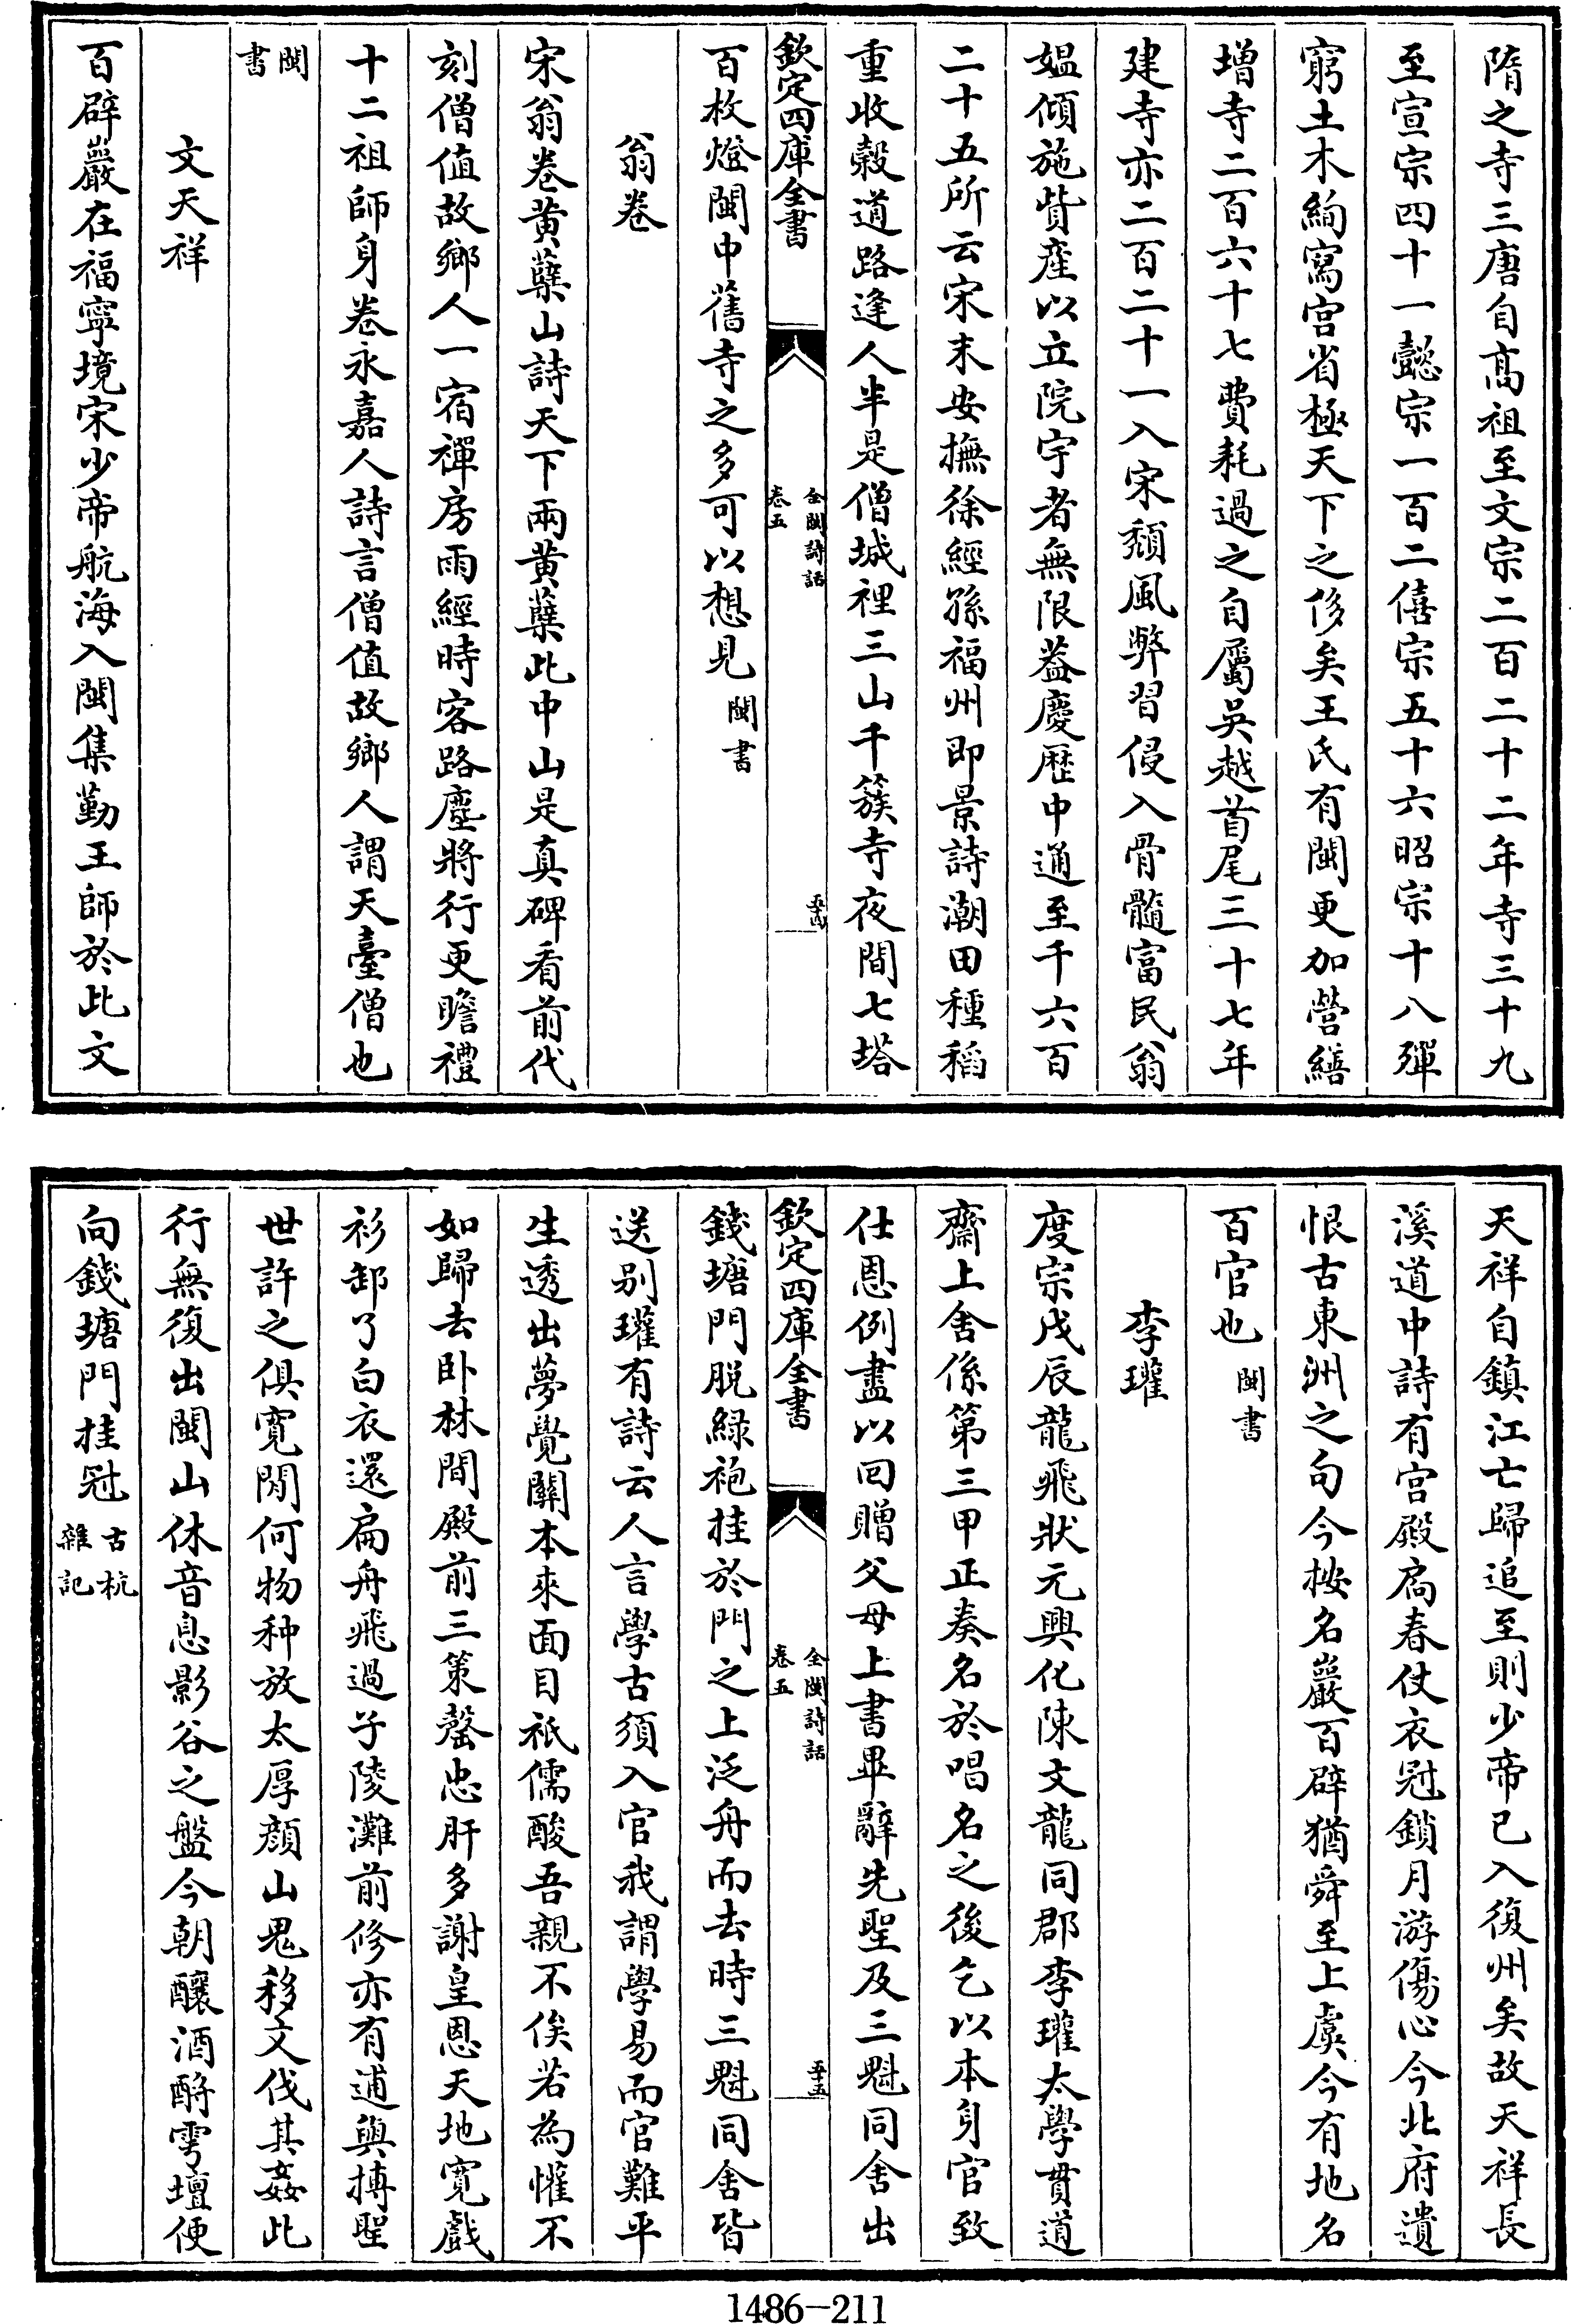 隋之寺三唐自高祖至文宗二百二十二年寺三十九
至宣宗四十一懿宗一百二僖宗五十六昭宗十八殫
窮土木絢寫宫省極天下之侈矣王氏有閩更加營繕
增寺二百六十七費耗過之自屬吳越首尾三十七年
建寺亦二百二十一入宋頹風弊習侵入骨髓富民翁
媪傾施貲產以立院宇者無限葢慶歴中通至千六百
二十五所云宋末安撫徐經孫福州即景詩潮田種稻
重收榖道路逢人半是僧城裡三山千簇寺夜間七塔
欽定四庫全書
全閩詩話
卷五
五十四
百枚燈閩中舊寺之多可以想見閩書
翁卷
宋翁卷黄蘗山詩天下兩黄蘗此中山是真碑看前代
刻僧值故鄉人一宿禪房雨經時客路塵將行更瞻禮
十二祖師身卷永嘉人詩言僧值故鄉人謂天臺僧也
閩書
文天祥
百辟巖在福寧境宋少帝航海入閩集勤王師於此文
天祥自鎮江亡歸追至則少帝已入復州矣故天祥長
溪道中詩有宫殿扄春仗衣冠鎖月游傷心今北府遺
恨古東洲之句今按名巖百辟猶舜至上虞今有地名
百官也閩書
李瓘
度宗戊辰龍飛狀元興化陳文龍同郡李瓘太學貫道
齋上舍係第三甲正奏名於唱名之後乞以本身官致
仕恩例盡以回贈父母上書畢辭先聖及三魁同舍出
欽定四庫全書
全閩詩話
卷五
五十五
錢塘門脱緑袍挂於門之上泛舟而去時三魁同舍皆
送别瓘有詩云人言學古須入官我謂學易而官難平
生透出夢覺關本來面目祇儒酸吾親不俟若為懽不
如歸去卧林間殿前三策罄忠肝多謝皇恩天地寛戲
衫卸了白衣還扁舟飛過子陵灘前修亦有逋與摶聖
世許之俱寛閒何物种放太厚顔山鬼移文伐其姦此
行無復出閩山休音息影谷之盤今朝釀酒酹雩壇便
向錢塘門挂冠古杭雜記
1486-211